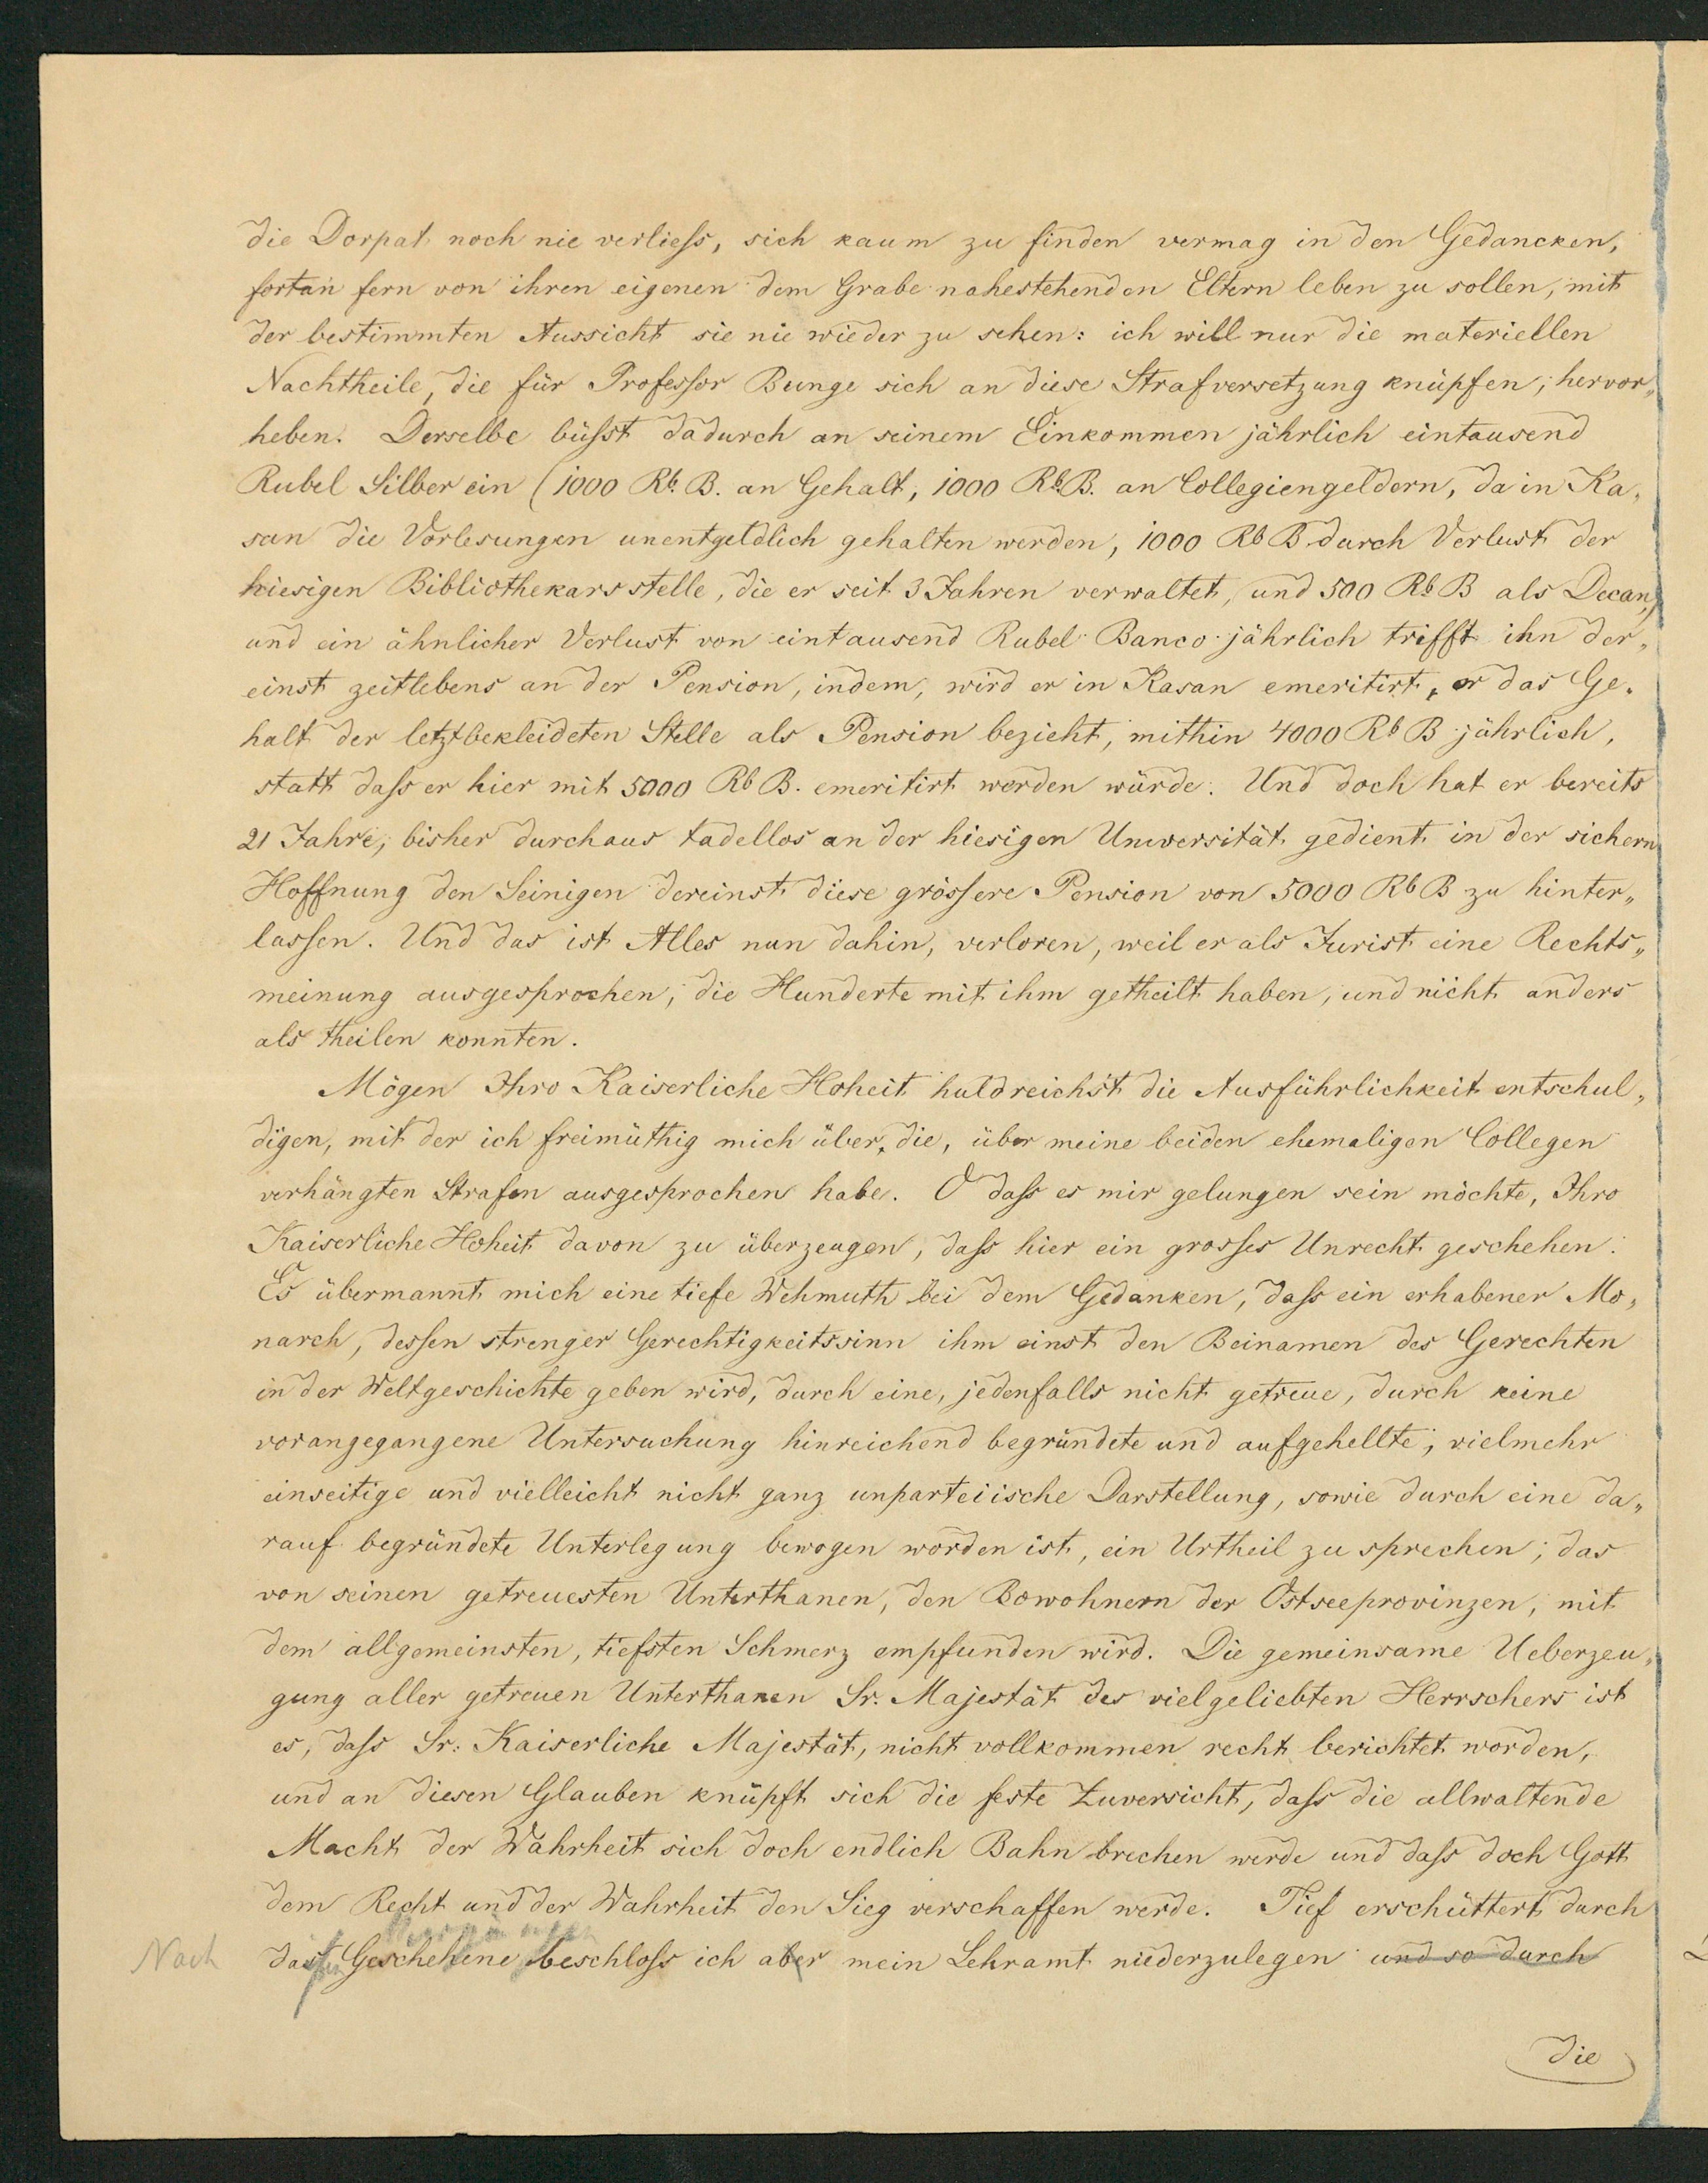 die Dorpat noch nie verliess, sich kaum zu finden vermag in den Gedancken,
fortan fern von ihren eigenen dem Grabe nahestehenden Eltern leben zu sollen, mit
der bestimmten Aussicht sie nie wieder zu sehen: ich will nur die materiellen
Nachtheile, die für Professor Bunge sich an diese Strafversetzung knüpfen, hervor„
heben. Derselbe büsst dadurch an seinem Einkommen jährlich eintausend
Rubel Silber ein (1000 Rb. B. an Gehalt, 1000 Rb. B. an Collegiengeldern, da in Ka„
san die Vorlesungen unentgeldlich gehalten werden, 1000 Rb B durch Verlust der
hiesigen Bibliothekarsstelle, die er seit 3 Jahren verwaltet, und 500 Rb B als Decan)
und ein ähnlicher Verlust von eintausend Rubel Banco jährlich trifft ihn der„
einst zeitlebens an der Pension, indem, wird er in Kasan emeritirt, er das Ge„
halt der letztbekleideten Stelle als Pension bezieht, mithin 4000 Rb B jährlich,
statt dass er hier mit 5000 Rb B. emeritirt werden würde. Und doch hat er bereits
21 Jahre, bisher durchaus tadellos an der hiesigen Universität gedient in der sichern
Hoffnung den Seinigen dereinst diese grössere Pension von 5000 Rb B zu hinter„
lassen. Und das ist Alles nun dahin, verloren, weil er als Jurist eine Rechts„
meinung ausgesprochen, die Hunderte mit ihm getheilt haben, und nicht anders
als theilen konnten.
Mögen Ihro Kaiserliche Hoheit huldreichst die Ausführlichkeit entschul„
digen, mit der ich freimüthig mich über, die, über meine beiden ehemaligen Collegen
verhängten Strafen ausgesprochen habe. O dass es mir gelungen sein möchte, Ihro
Kaiserliche Hoheit davon zu überzeugen, dass hier ein grosses Unrecht geschehen.
Es übermannt mich eine tiefe Wehmuth bei dem Gedanken, dass ein erhabener Mo„
narch, dessen strenger Gerechtigkeitssinn ihm einst den Beinamen des Gerechten
in der Weltgeschichte geben wird, durch eine, jedenfalls nicht getreue, durch keine
vorangegangene Untersuchung hinreichend begründete und aufgehellte, vielmehr
einseitige und vielleicht nicht ganz unparteiische Darstellung, sowie durch eine da„
rauf begründete Unterlegung bewogen worden ist, ein Urtheil zu sprechen, das
von seinen getreuesten Unterthanen, den Bewohnern der Ostseeprovinzen, mit
dem allgemeinsten, tiefsten Schmerz empfunden wird. Die gemeinsame Ueberzeu„
gung aller getreuen Unterthanen Sr. Majestät des vielgeliebten Herrschers ist
es, dass Sr. Kaiserliche Majestät, nicht vollkommen recht berichtet worden,
und an diesen Glauben knüpft sich die feste Zuversicht, dass die allwaltende
Macht der Wahrheit sich doch endlich Bahn brechen werde und dass doch Gott
dem Recht und der Wahrheit den Sieg verschaffen werde. Tief erschüttert durch
Nach das Geschehene beschloss ich aber mein Lehramt niederzulegen und so durch
die